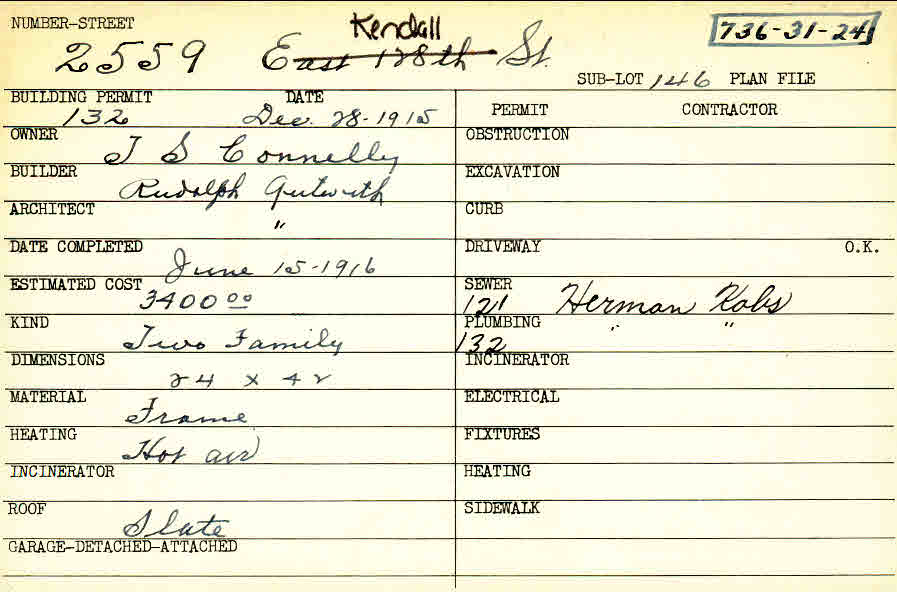 NUMBER-STREET
Kendall
736-31-24
2559 East 128th St.
SUB-LOT 146 PLAN FILE
BUILDING PERMIT DATE
132 Dec. 28-1915
OWNER
J S Connelly
BUILDER
Rudolph Gutwirth
ARCHITECT
"
DATE COMPLETED
June 15-1916
ESTIMATED COST
3400 00
KIND
Two Family
DIMENSIONS
24 x 42
MATERIAL
Frame
HEATING
Hot air
INCINERATOR
ROOF
Slate
GARAGE-DETACHED-ATTACHED
PERMIT CONTRACTOR
OBSTRUCTION
EXCAVATION
CURB
DRIVEWAY O.K.
SEWER
121 Herman Kobs
PLUMBING " "
132
INCINERATOR
ELECTRICAL
FIXTURES
HEATING
SIDEWALK